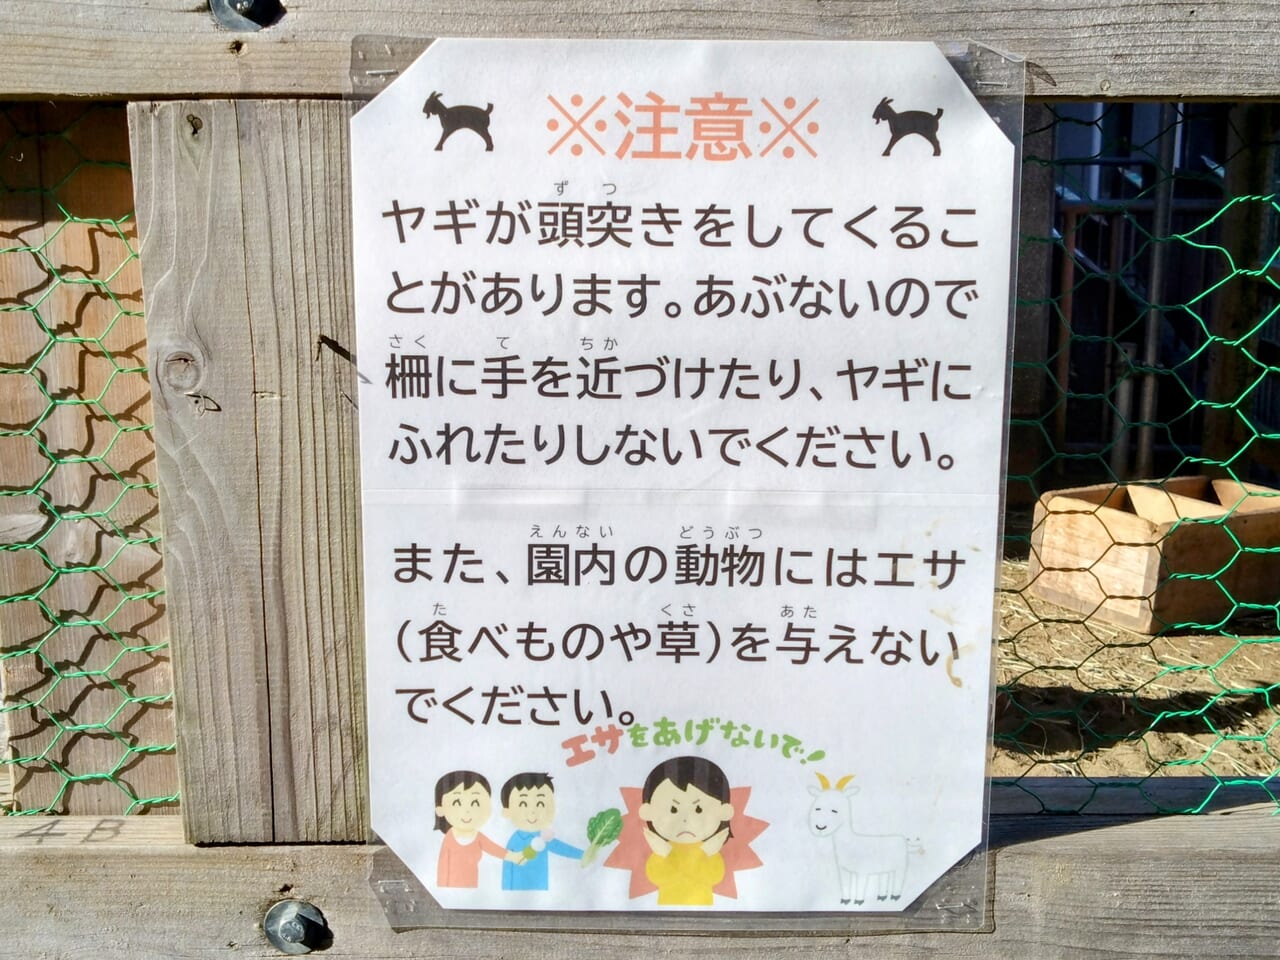 ※注意※
ヤギが頭突きをしてくるこ
とがあります。あぶないので
柵に手を近づけたり、ヤギに
ふれたりしないでください。
また、園内の動物にはエサ
（食べものや草）を与えない
でください。
エサをあげないで！
4B